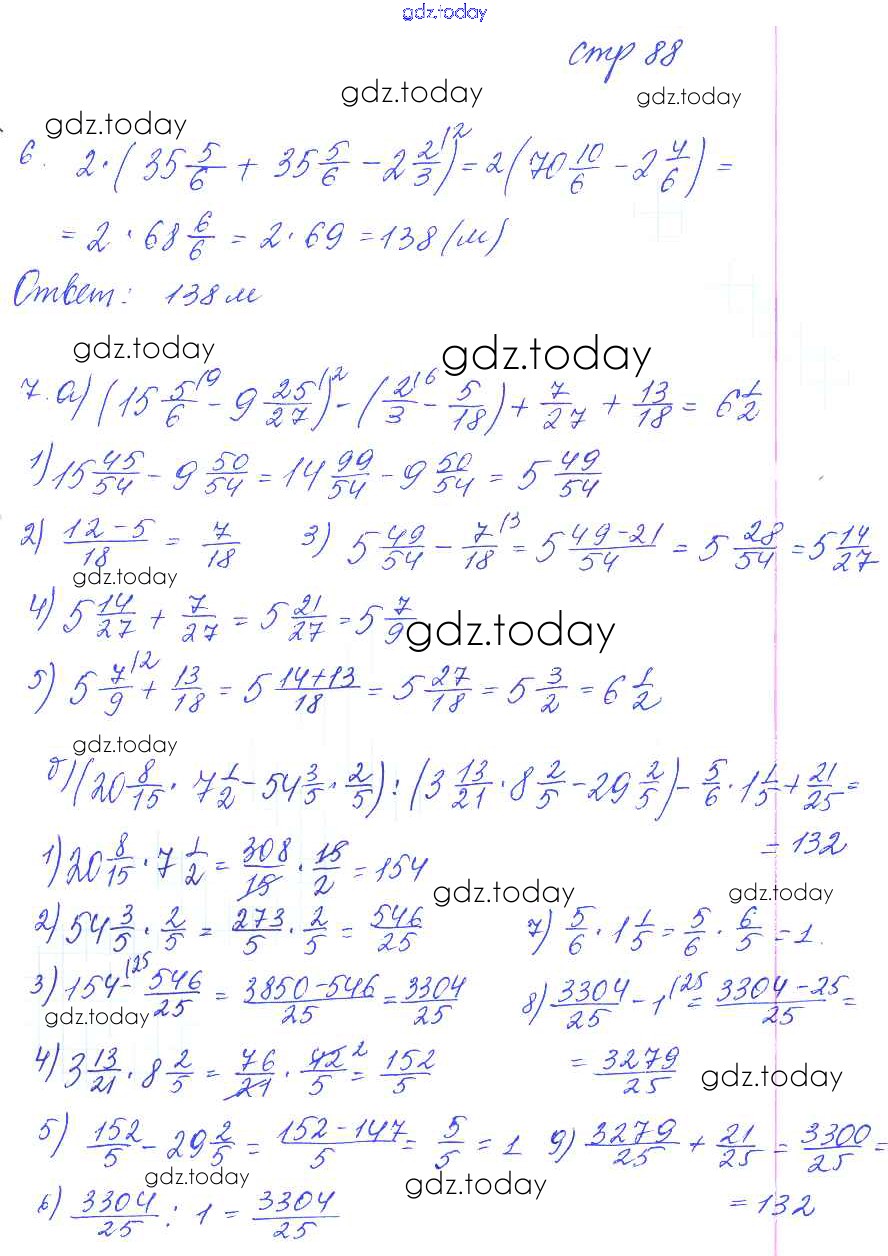 gdz.today
стр 88
gdz.today
gdz.today
gdz.today
6. 2·(35 5/6 + 35 5/6 − 2 2/3 |2) = 2(70 10/6 − 2 4/6) =
= 2 · 68 6/6 = 2·69 = 138 (м)
Ответ: 138 м
gdz.today
gdz.today
7. а) (15 5/6 |9 − 9 25/27 |2) − (2/3 |6 − 5/18) + 7/27 + 13/18 = 6 1/2
1) 15 45/54 − 9 50/54 = 14 99/54 − 9 50/54 = 5 49/54
2) (12−5)/18 = 7/18 3) 5 49/54 − 7/18 |3 = 5 (49−21)/54 = 5 28/54 = 5 14/27
gdz.today
4) 5 14/27 + 7/27 = 5 21/27 = 5 7/9
gdz.today
5) 5 7/9 |2 + 13/18 = 5 (14+13)/18 = 5 27/18 = 5 3/2 = 6 1/2
gdz.today
б) (20 8/15 · 7 1/2 − 54 3/5 · 2/5) : (3 13/21 · 8 2/5 − 29 2/5) − 5/6 · 1 1/5 + 21/25 =
= 132
1) 20 8/15 · 7 1/2 = 308/15 · 15/2 = 154
gdz.today
gdz.today
2) 54 3/5 · 2/5 = 273/5 · 2/5 = 546/25 7) 5/6 · 1 1/5 = 5/6 · 6/5 = 1.
3) 154 |25 − 546/25 = (3850−546)/25 = 3304/25 8) 3304/25 − 1 |25 = (3304−25)/25 =
gdz.today
4) 3 13/21 · 8 2/5 = 76/21 · 42/5 2 = 152/5 = 3279/25
gdz.today
5) 152/5 − 29 2/5 = (152−147)/5 = 5/5 = 1 9) 3279/25 + 21/25 = 3300/25 =
gdz.today
gdz.today
6) 3304/25 : 1 = 3304/25 = 132